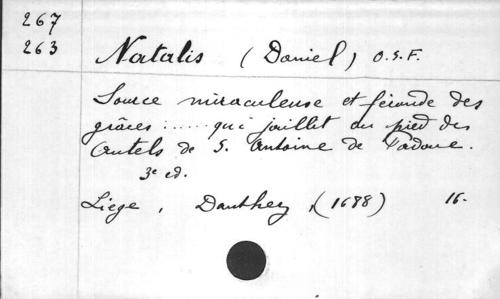 267
263
Natalis (Daniel) O.S.F.
Source miraculeuse et féconde des
grâces ..... qui jaillet au pied des
Autels de S. Antoine de Padoue.
3e ed.
Liege, Dauthez, (1688) 16-